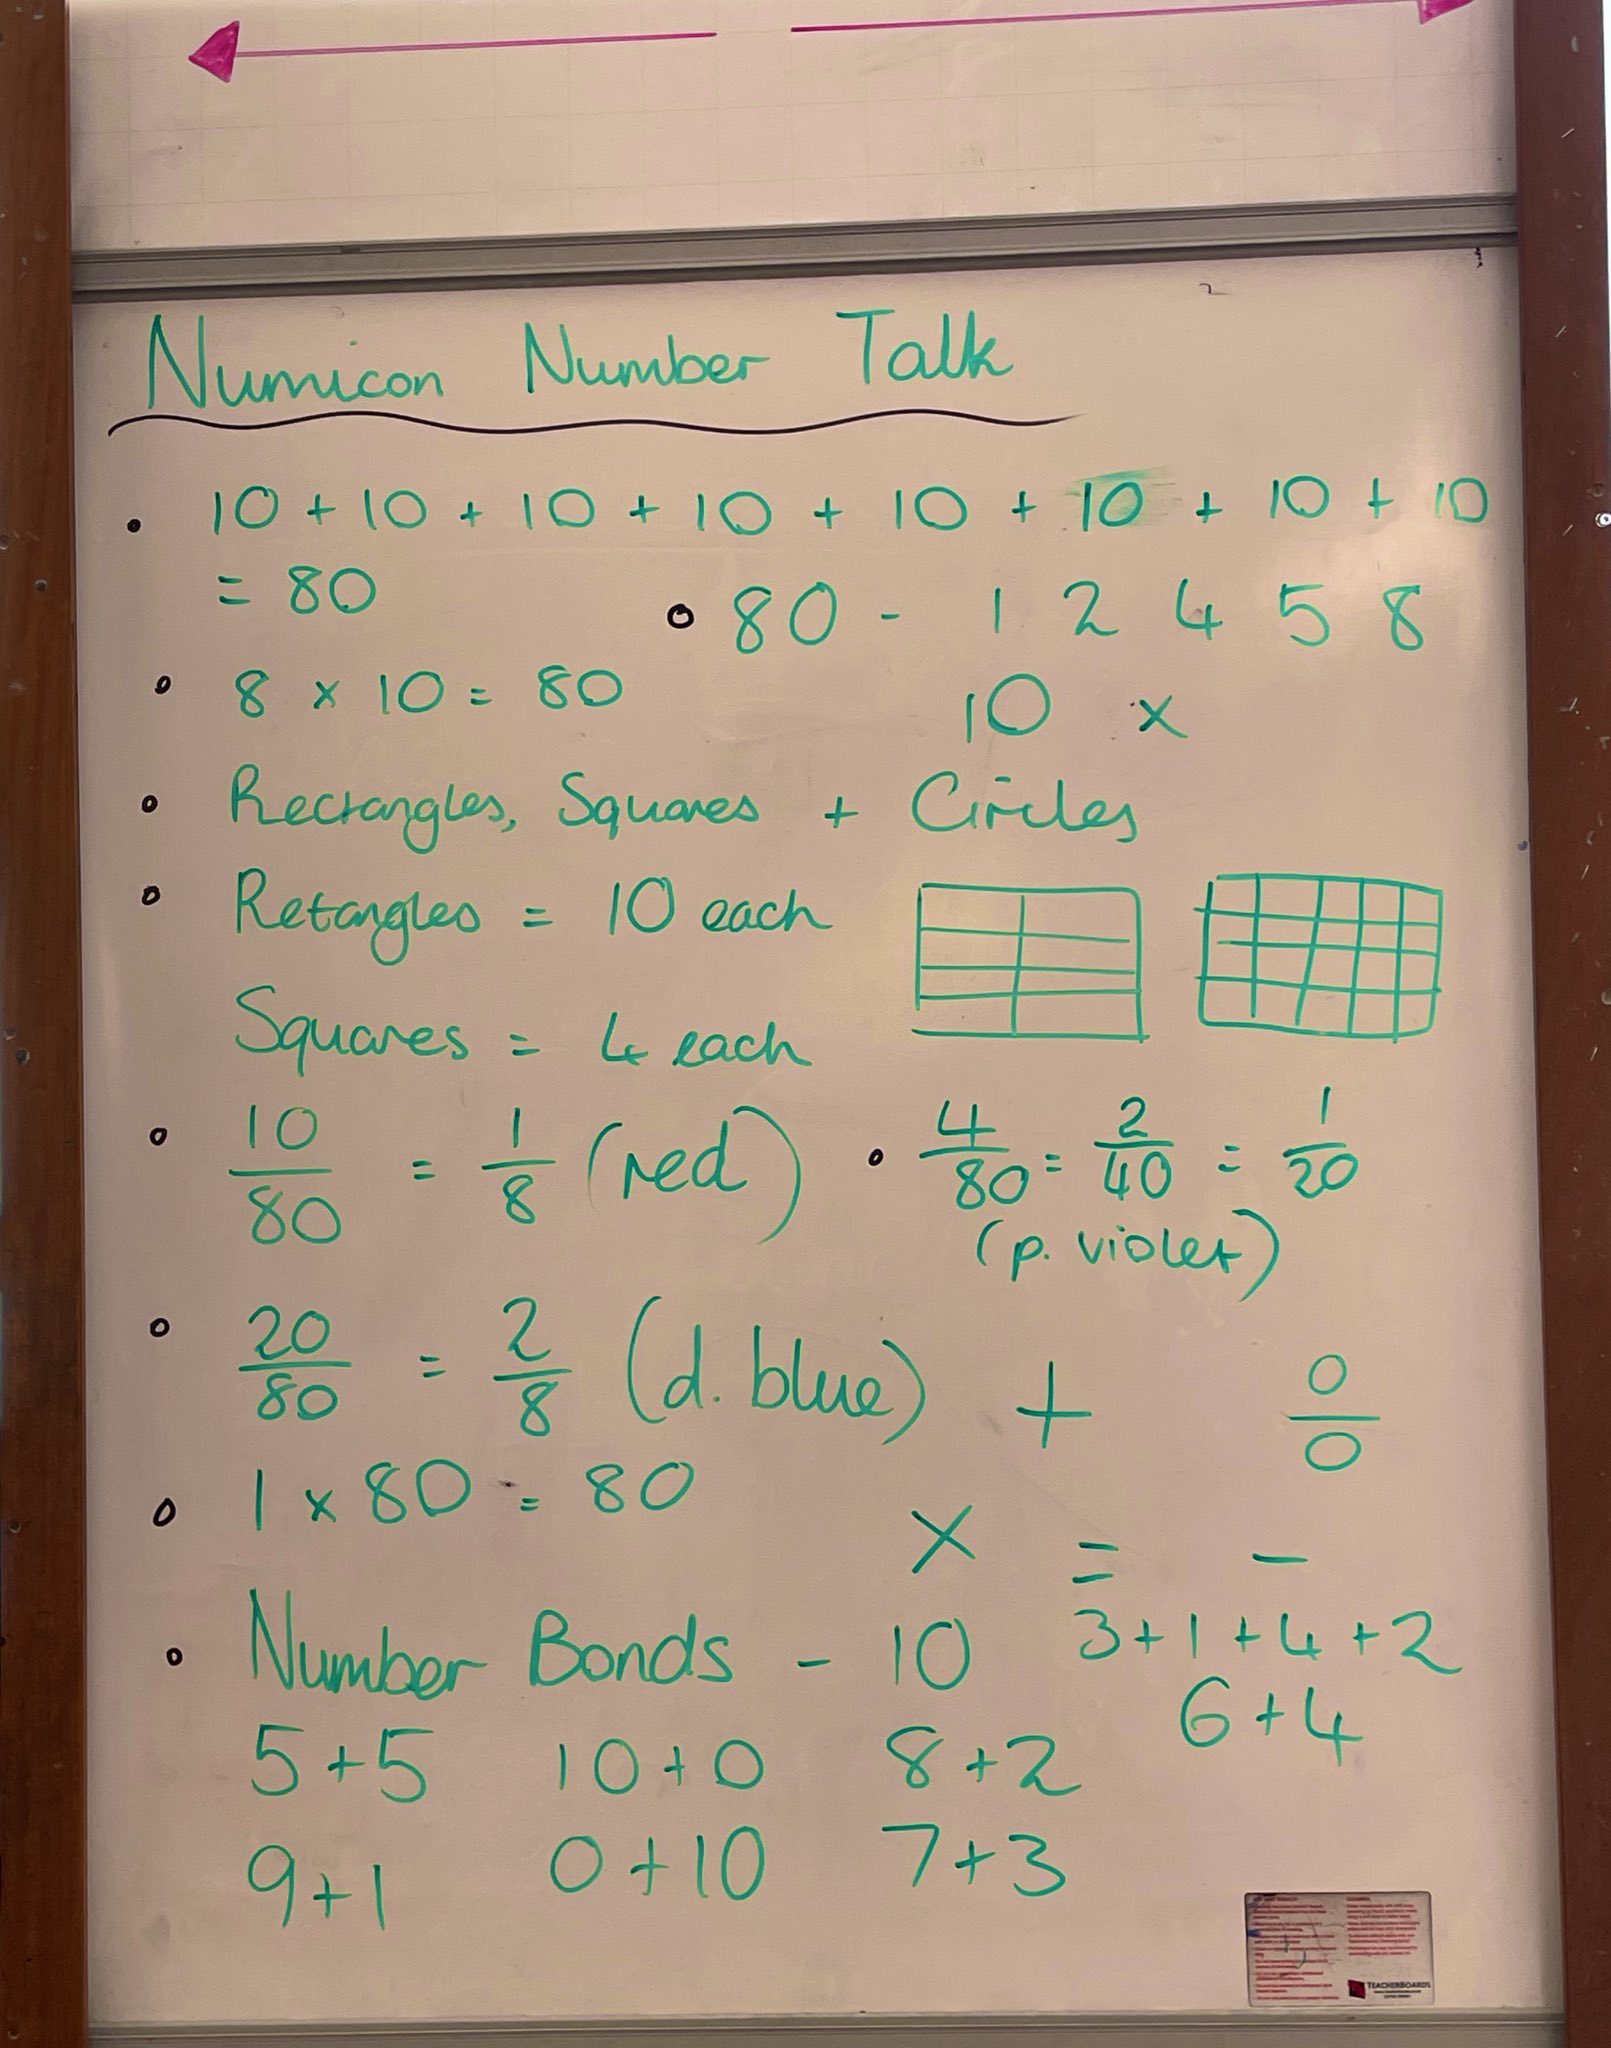 Numicon Number Talk
10 + 10 + 10 + 10 + 10 + 10 + 10 + 10
= 80
80 - 1 2 4 5 8
8 x 10 = 80
10 x
Rectangles, Squares + Circles
Retangles = 10 each
Squares = 4 each
10/80 = 1/8 (red)
4/80 = 2/40 = 1/20
(p. violet)
20/80 = 2/8 (d. blue)
+ 0/0
1 x 80 = 80
x = -
Number Bonds - 10
3+1+4+2
6+4
5+5 10+0 8+2
9+1 0+10 7+3
TEACHERBOARDS